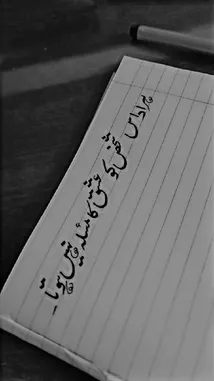 ہر اداس شخص کو عشق کا مسئلہ نہیں ہوتا۔